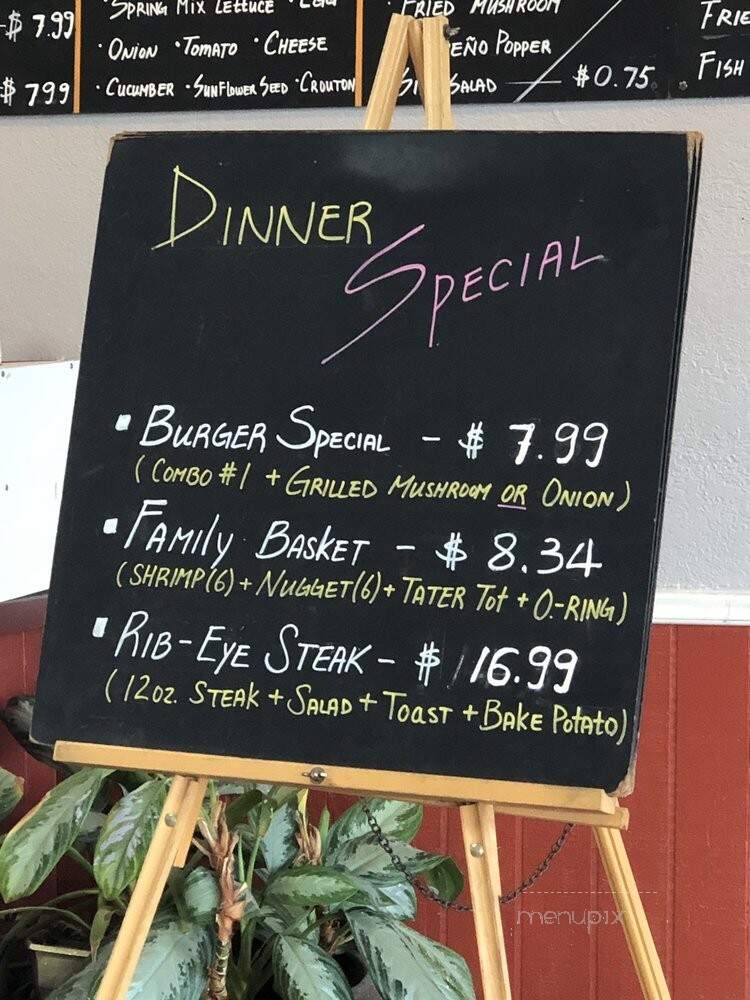 $ 7.99
$ 7.99
· SPRING MIX LETTUCE
· ONION · TOMATO · CHEESE
· CUCUMBER · SUNFLOWER SEED · CROUTON
FRIED MUSHROOM
POPPER
SALAD $0.75
FISH
DINNER
SPECIAL
▪ BURGER SPECIAL - $ 7.99
(COMBO #1 + GRILLED MUSHROOM OR ONION)
▪ FAMILY BASKET - $ 8.34
(SHRIMP(6) + NUGGET(6) + TATER TOT + O.-RING)
▪ RIB-EYE STEAK - $ 16.99
(12oz. STEAK + SALAD + TOAST + BAKE POTATO)
menupix